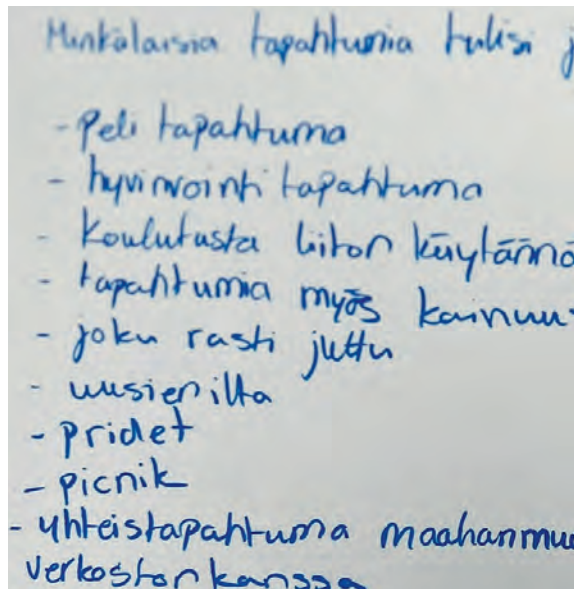 Minkälaisia tapahtumia tulisi j
- Peli tapahtuma
- hyvinvointi tapahtuma
- Koulutusta liiton käytännö
- tapahtumia myös kainuu
- joku rasti juttu
- uusien ilta
- pridet
- picnik
- yhteistapahtuma maahanmu
verkoston kanssa